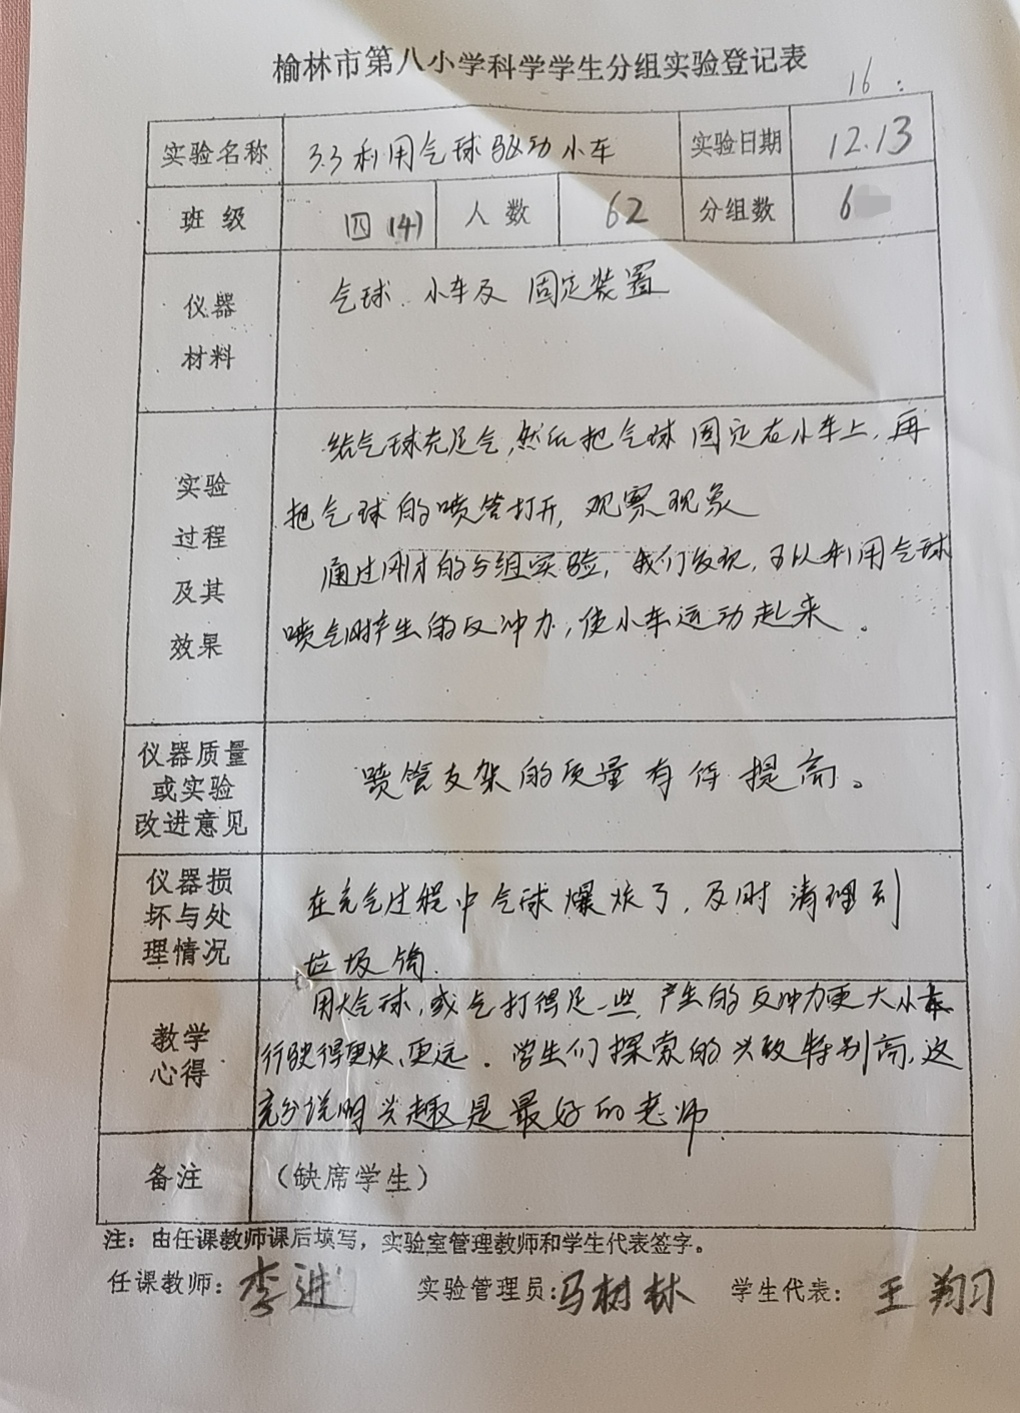 榆林市第八小学科学学生分组实验登记表
16:
实验名称 3.3利用气球驱动小车 实验日期 12.13
班 级 四(4) 人 数 62 分组数 6
仪器
材料
气球、小车及固定装置
实验
过程
及其
效果
给气球充足气,然后把气球固定在小车上,再
把气球的喷管打开,观察现象
通过刚才的分组实验,我们发现,可以利用气球
喷气时产生的反冲力,使小车运动起来。
仪器质量
或实验
改进意见
喷管支架的质量有待提高。
仪器损
坏与处
理情况
在充气过程中气球爆炸了,及时清理到
垃圾筒.
教学
心得
用大气球,或气打得足一些,产生的反冲力更大小车
行驶得更快、更远。学生们探索的兴致特别高,这
充分说明兴趣是最好的老师
备注 (缺席学生)
注:由任课教师课后填写,实验室管理教师和学生代表签字。
任课教师:李进 实验管理员:马树林 学生代表:王翔